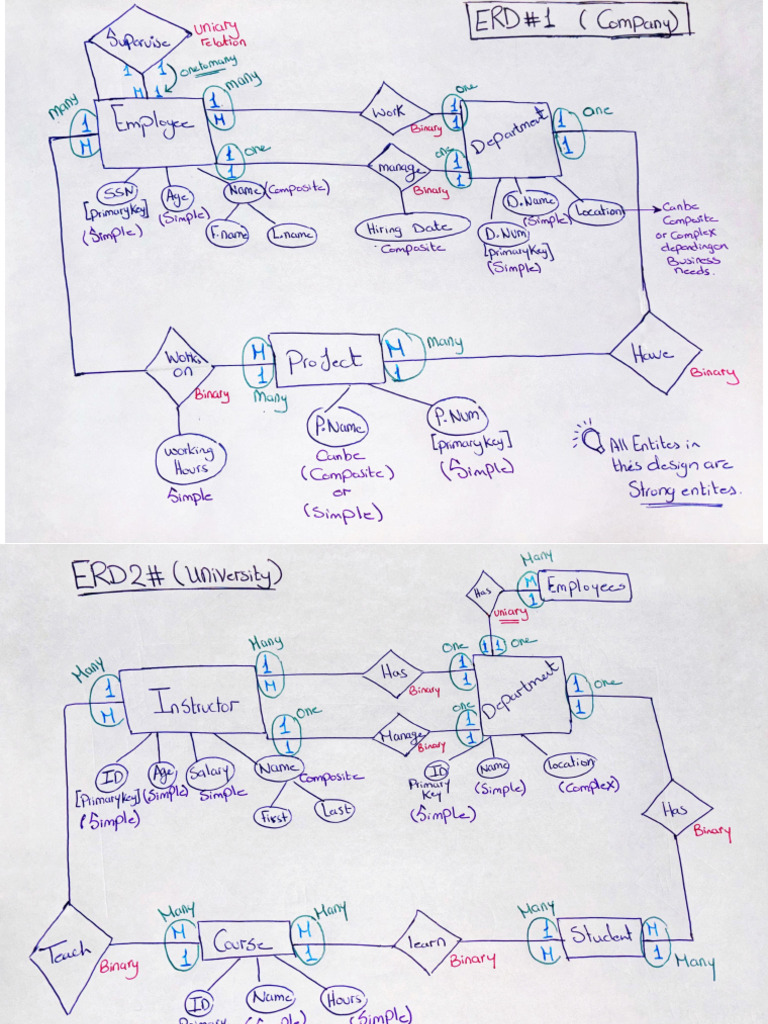 ERD#1 (Company)
Supervise
uniary
relation
1
1
onetomany
M
1
many
Many
1
M
Employee
1
M
Work
Binary
one
1
1
Department
1
1
one
1
1
one
manage
Binary
one
1
1
SSN
[primarykey]
(Simple)
Age
(Simple)
Name
(Composite)
F.name
L.name
Hiring Date
Composite
D.Name
(Simple)
D.Num
[primarykey]
(Simple)
Location
Canbe
Composite
or Complex
dependingon
Business
needs.
Works
on
Binary
M
1
Many
Project
M
1
Many
Have
Binary
working
Hours
Simple
P.Name
Canbe
(Composite)
or
(Simple)
P.Num
[primarykey]
(Simple)
All Entites in
this design are
Strong entites.
ERD2# (University)
Many
Has
M
1
Employees
uniary
1
1
one
Many
1
M
Instructor
Many
1
M
Has
Binary
one
1
1
Department
1
1
one
one
1
1
Manage
Binary
one
1
1
ID
[Primarykey]
(Simple)
Age
(Simple)
Salary
Simple
Name
Composite
First
Last
ID
Primary
Key
(Simple)
Name
(Simple)
Location
(Complex)
Has
Binary
Teach
Binary
Many
M
1
Course
Many
M
1
learn
Binary
Many
1
M
Student
M
1
Many
ID
Primary
Name
(Simple)
Hours
(Simple)